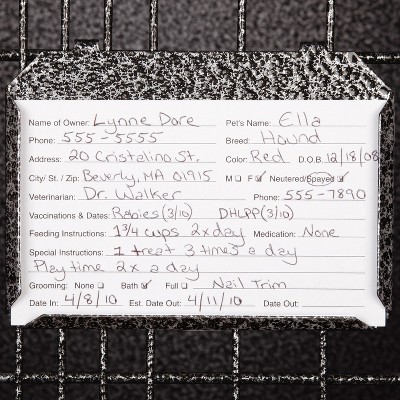 Name of Owner: Lynne Dore Pet's Name: Ella
Phone: 555-5555 Breed: Hound
Address: 20 Cristalino St. Color: Red D.O.B. 12/18/08
City/ St. / Zip: Beverly, MA 01915 M ☐ F ☑ Neutered/Spayed ☑
Veterinarian: Dr. Walker Phone: 555-7890
Vaccinations & Dates: Rabies (3/10) DHLPP (3/10)
Feeding Instructions: 1 3/4 cups 2x day Medication: None
Special Instructions: 1 treat 3 times a day
Play time 2x a day
Grooming: None ☐ Bath ☑ Full ☐ Nail Trim
Date In: 4/8/10 Est. Date Out: 4/11/10 Date Out: